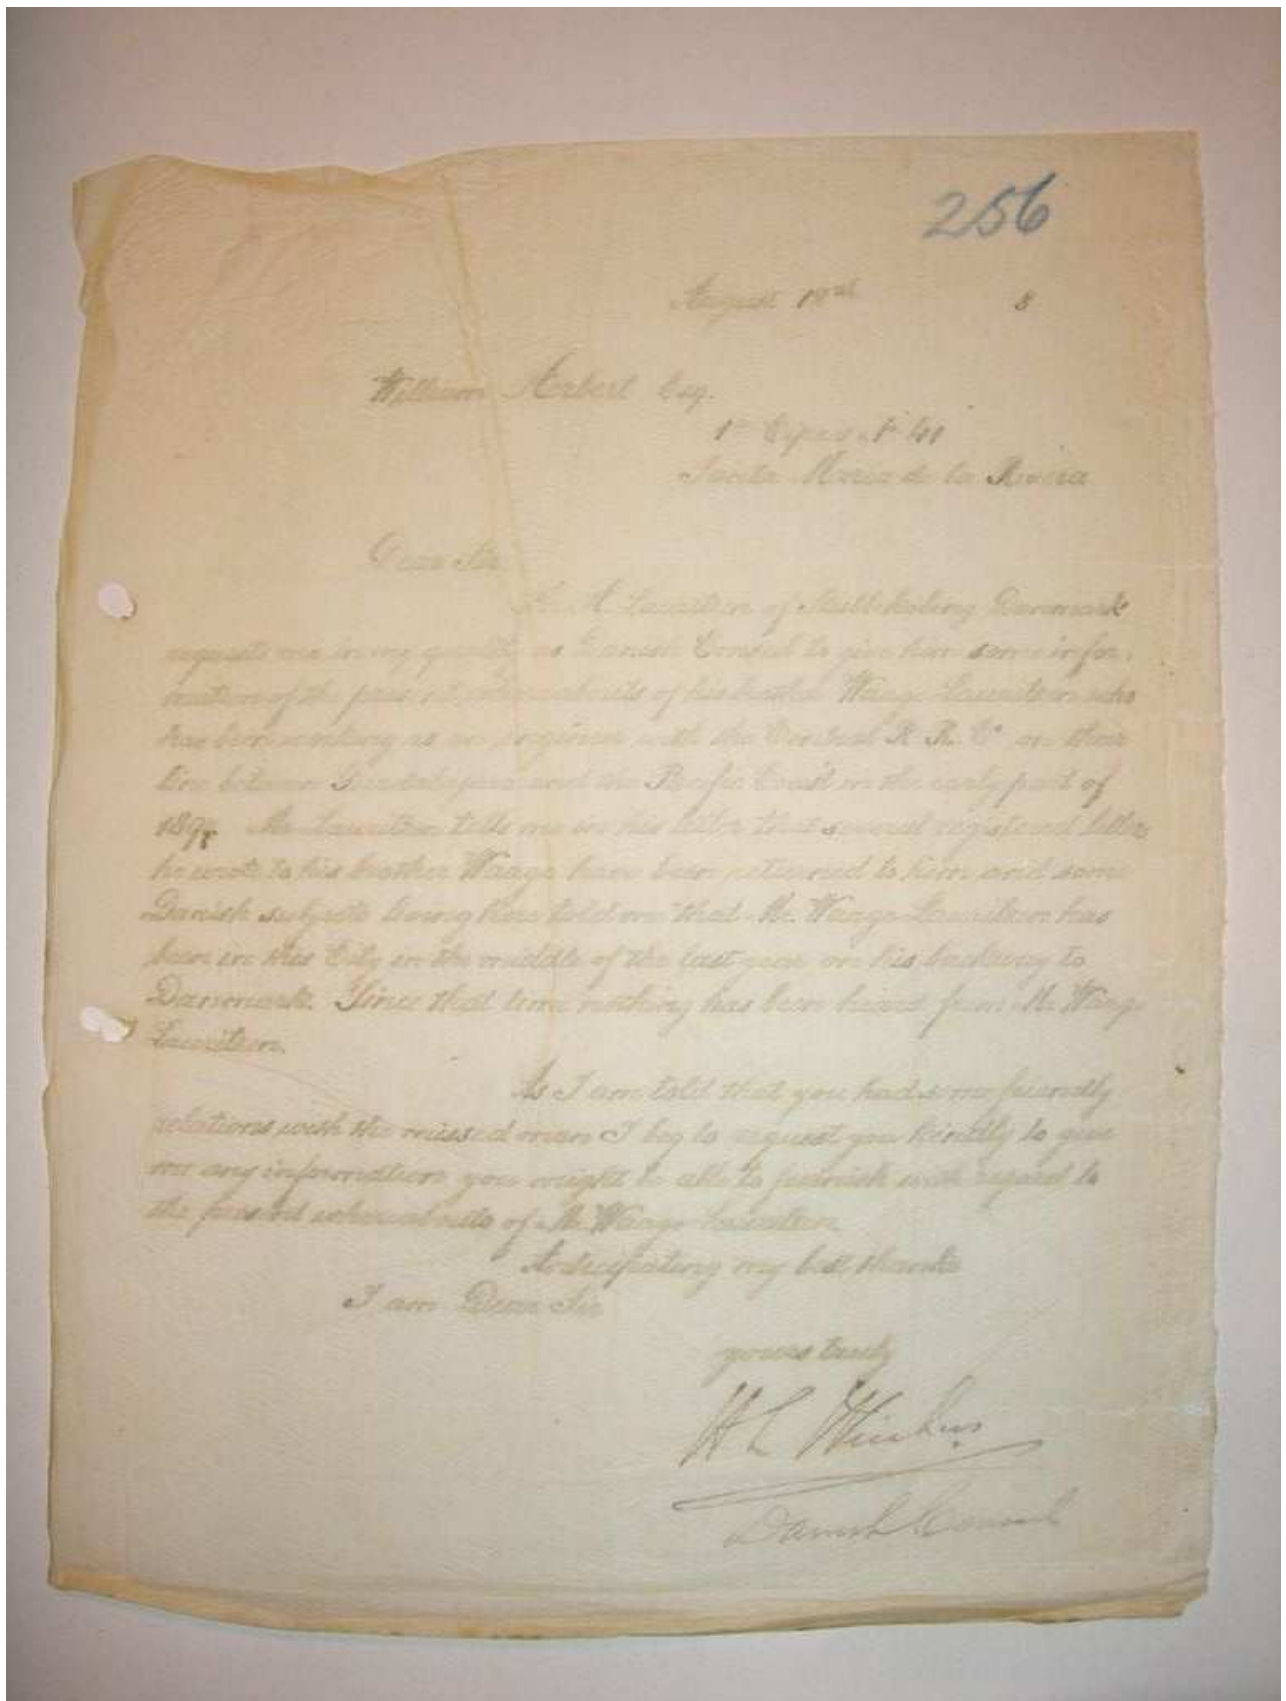 256
August 8
William Esq.
Santa Maria de la
Dear Sir
of Danmark
requests me in my quality as Danish Consul to give him some infor-
mation of the present whereabouts of his brother Waage Lauritzen who
has been working as an engineer with the Central R. R. Co on their
line between Guadalajara and the Pacific Coast in the early part of
Mr. Lauritzen tells me in his letter that several registered letters
he wrote to his brother Waage have been returned to him and some
Danish subjects living here told me that Mr. Waage Lauritzen has
been in this City in the middle of the last year on his backway to
Danmark. Since that time nothing has been heard from Mr. Waage
Lauritzen.
As I am told that you had some friendly
relations with the missed man I beg to request you kindly to give
me any information you might be able to furnish with regard to
the present whereabouts of Mr. Waage Lauritzen
Anticipating my best thanks
I am Dear Sir
yours truly
Danish Consul